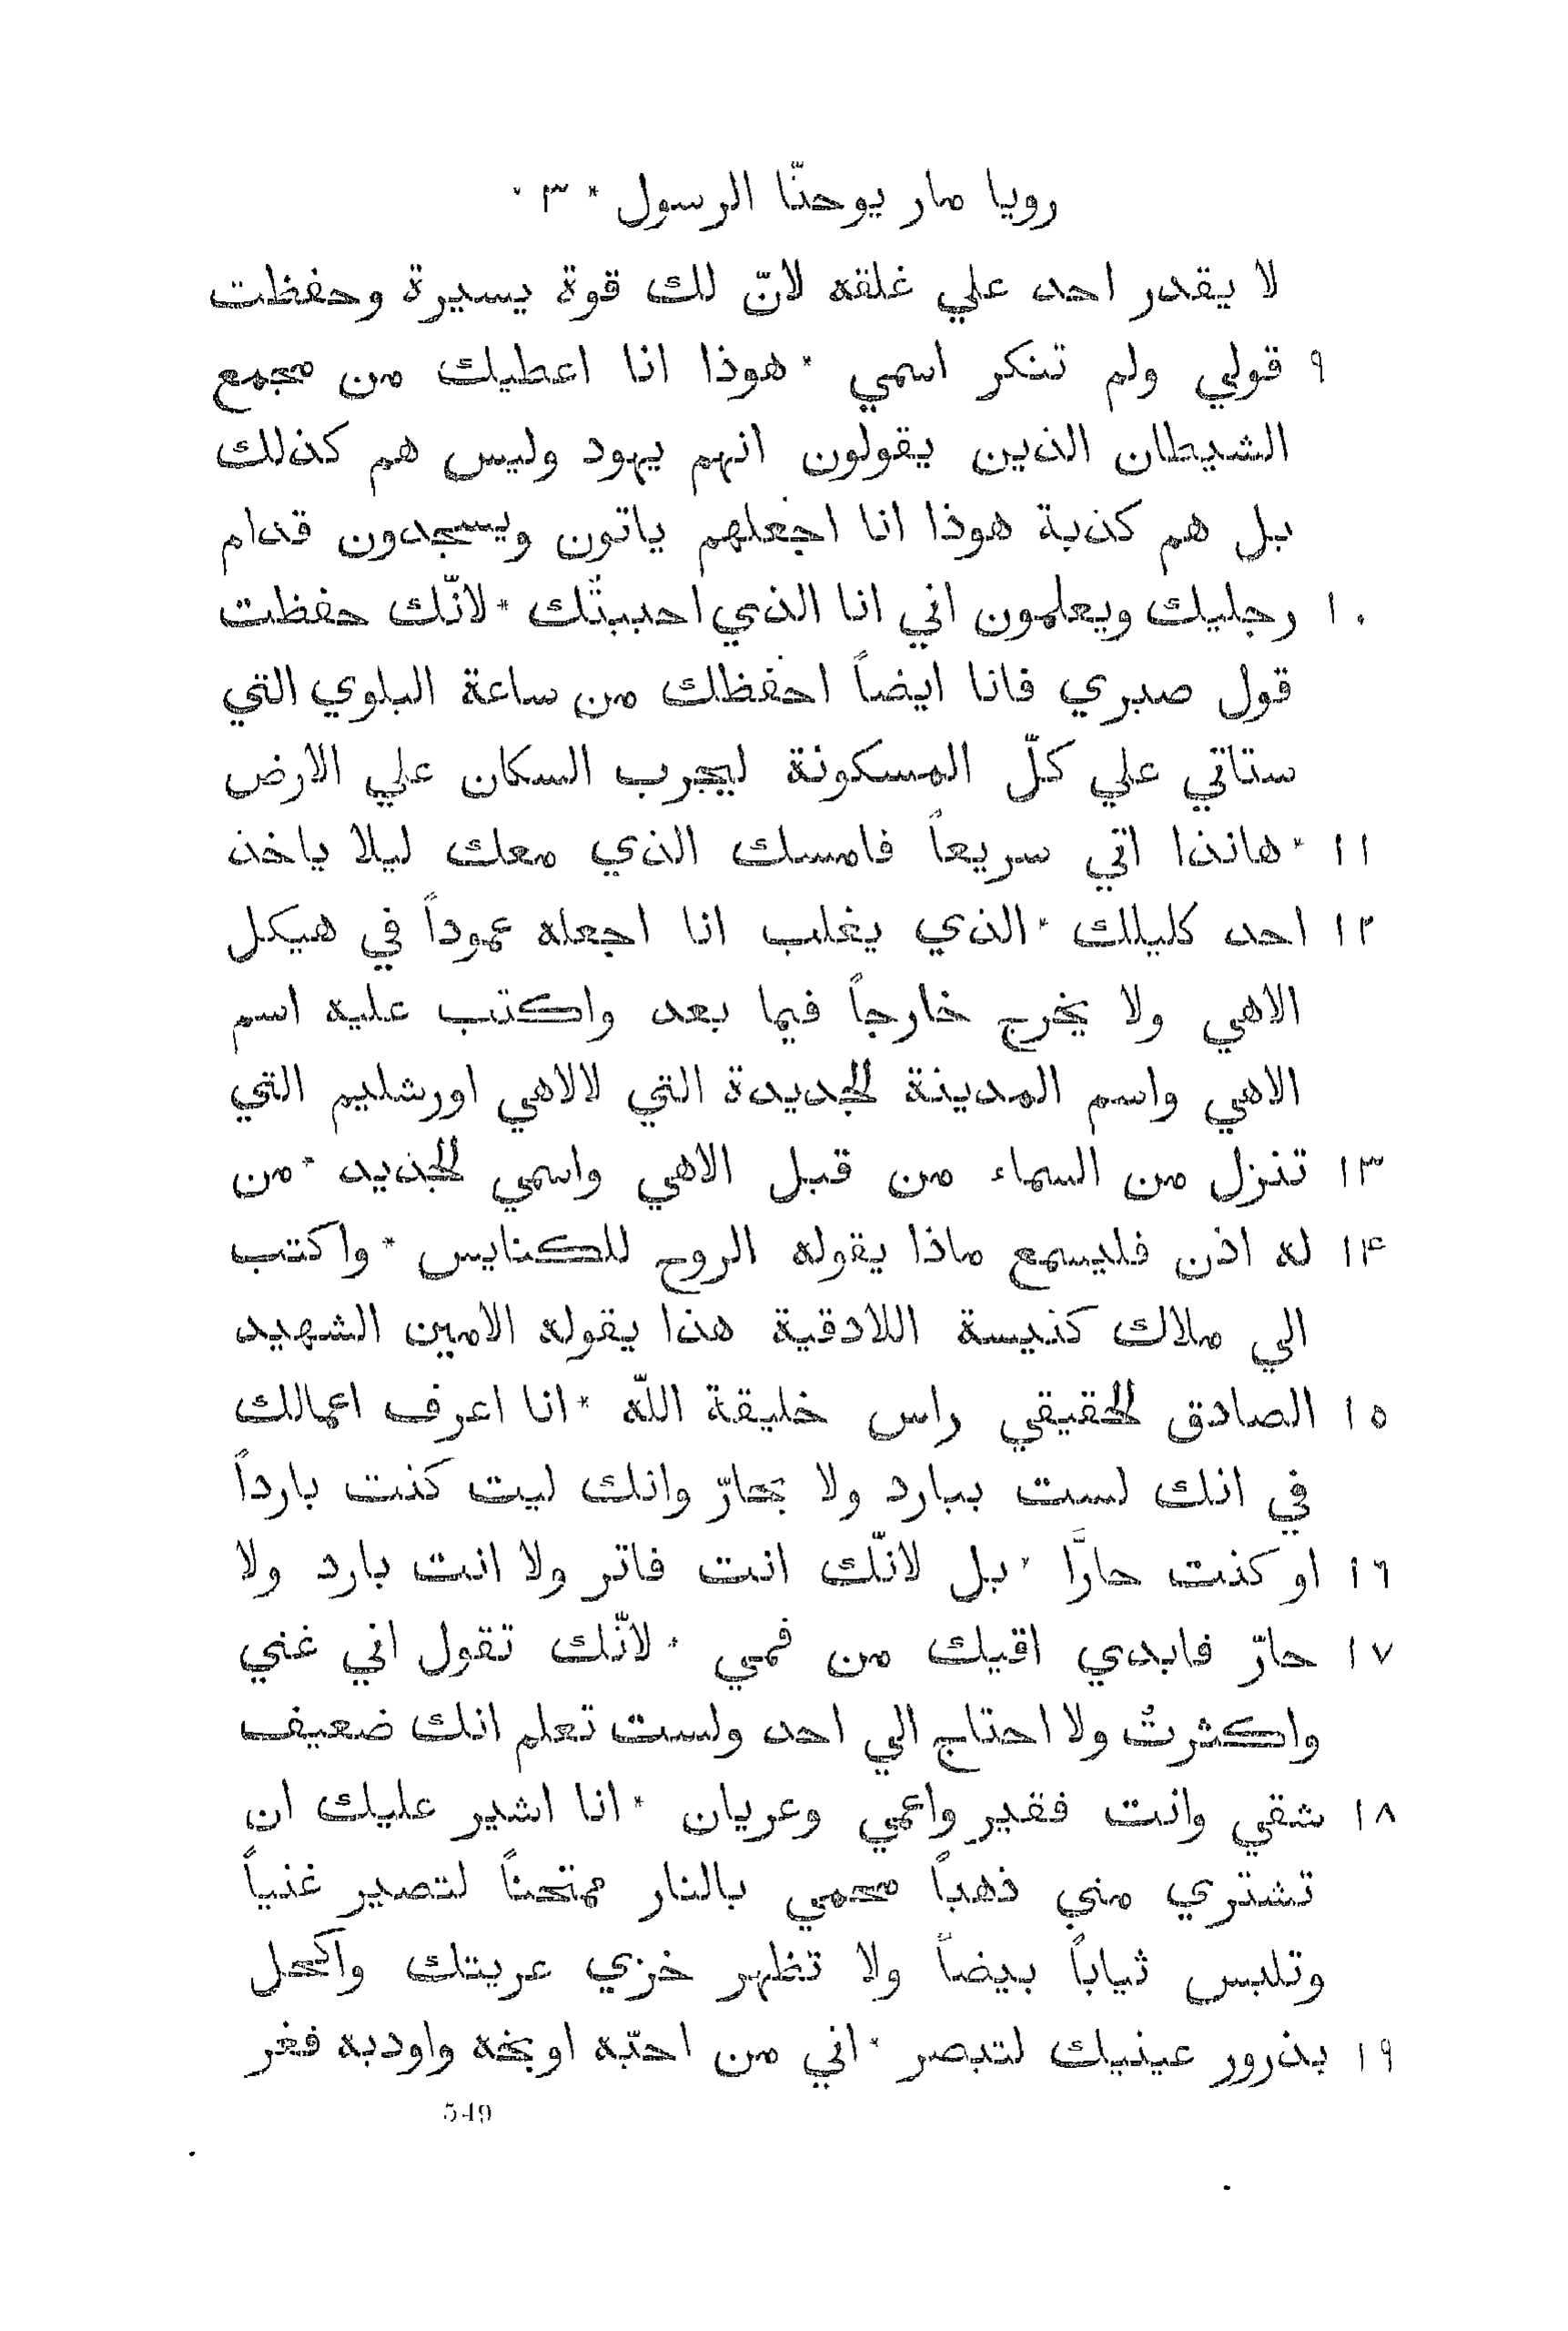 رويا مار يوحنّا الرسول * ٣ *
لا يقدر احد علي غلقه لانّ لك قوة يسيرة وحفظت
٩ قولي ولم تنكر اسمي * هوذا انا اعطيك من مجمع
الشيطان الذين يقولون انهم يهود وليس هم كذلك
بل هم كذبة هوذا انا اجعلهم ياتون ويسجدون قدام
١٠ رجليك ويعلمون اني انا الذي احببتك * لانّك حفظت
قول صبري فانا ايضاً احفظك من ساعة البلوي التي
ستاتي علي كلّ المسكونة ليجرب السكان علي الارض
١١ * هانذا اتي سريعاً فامسك الذي معك ليلا ياخذ
١٢ احد كليلك * الذي يغلب انا اجعله عموداً في هيكل
الاهي ولا يخرج خارجاً فيما بعد واكتب عليه اسم
الاهي واسم المدينة الجديدة التي لالاهي اورشليم التي
١٣ تنزل من السماء من قبل الاهي واسمي الجديد * من
١۴ له اذن فليسمع ماذا يقوله الروح للكنايس * واكتب
الي ملاك كنيسة اللادقية هذا يقوله الامين الشهيد
١٥ الصادق الحقيقي راس خليقة اللّه * انا اعرف اعمالك
في انك لست ببارد ولا بحارّ وانك ليت كنت بارداً
١٦ او كنت حارًّا * بل لانّك انت فاتر ولا انت بارد ولا
١٧ حارّ فابدي اقيك من فمي * لانّك تقول اني غني
واكثرتُ ولا احتاج الي احد ولست تعلم انك ضعيف
١٨ شقي وانت فقير واعمي وعريان * انا اشير عليك ان
تشتري مني ذهباً محمي بالنار ممتحناً لتصير غنياً
وتلبس ثياباً بيضاً ولا تظهر خزي عريتك واكحل
١٩ بذرور عينيك لتبصر * اني من احبّه اوبخه واودبه فغر
549